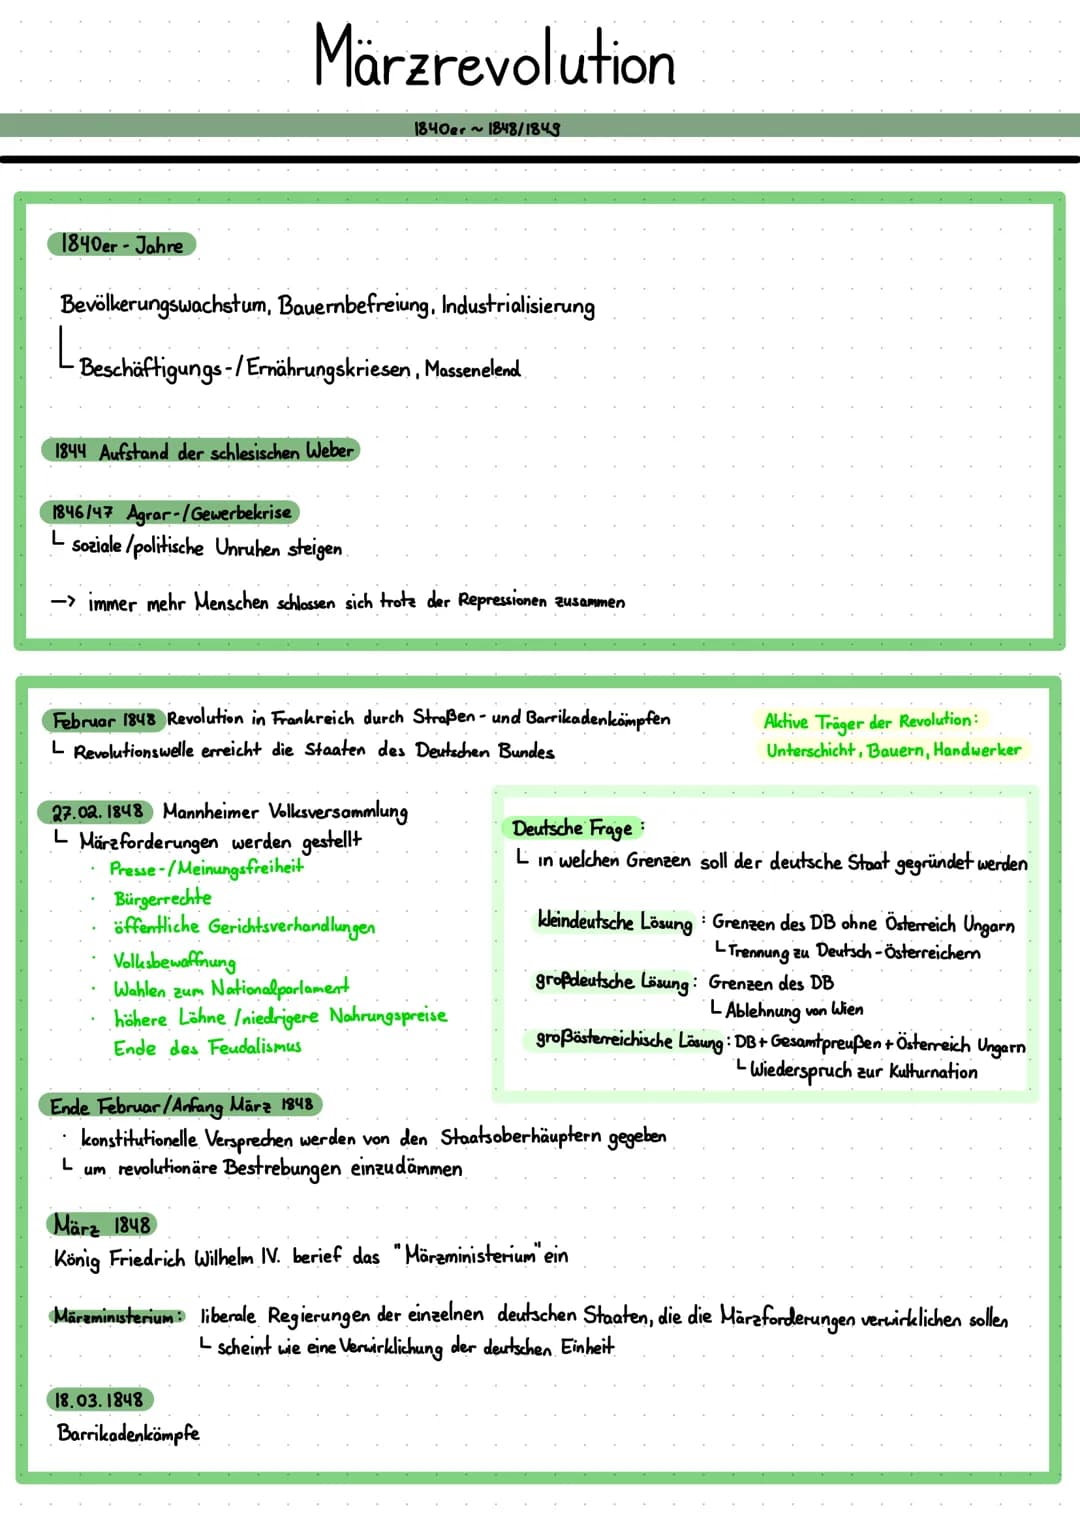 Märzrevolution
1840er ~ 1848/1849
1840er - Jahre
Bevölkerungswachstum, Bauernbefreiung, Industrialisierung
Beschäftigungs-/Ernährungskriesen, Massenelend
1844 Aufstand der schlesischen Weber
1846/47 Agrar-/Gewerbekrise
soziale/politische Unruhen steigen
--> immer mehr Menschen schlossen sich trotz der Repressionen zusammen
Februar 1848 Revolution in Frankreich durch Straßen- und Barrikadenkämpfen
Revolutionswelle erreicht die Staaten des Deutschen Bundes
Aktive Träger der Revolution:
Unterschicht, Bauern, Handwerker
27.02.1848 Mannheimer Volksversammlung
Märzforderungen werden gestellt
· Presse-/Meinungsfreiheit
· Bürgerrechte
· öffentliche Gerichtsverhandlungen
· Volksbewaffnung
· Wahlen zum Nationalparlament
· höhere Löhne /niedrigere Nahrungspreise
Ende des Feudalismus
Deutsche Frage:
in welchen Grenzen soll der deutsche Staat gegründet werden
kleindeutsche Lösung: Grenzen des DB ohne Österreich Ungarn
Trennung zu Deutsch-Österreichern
großdeutsche Lösung: Grenzen des DB
Ablehnung von Wien
großösterreichische Lösung: DB + Gesamtpreußen + Österreich Ungarn
Wiederspruch zur Kulturnation
Ende Februar/Anfang März 1848
· konstitutionelle Versprechen werden von den Staatsoberhäuptern gegeben
um revolutionäre Bestrebungen einzudämmen
März 1848
König Friedrich Wilhelm IV. berief das "Märzministerium" ein
Märzministerium: liberale Regierungen der einzelnen deutschen Staaten, die die Märzforderungen verwirklichen sollen
scheint wie eine Verwirklichung der deutschen Einheit
18.03.1848
Barrikadenkämpfe